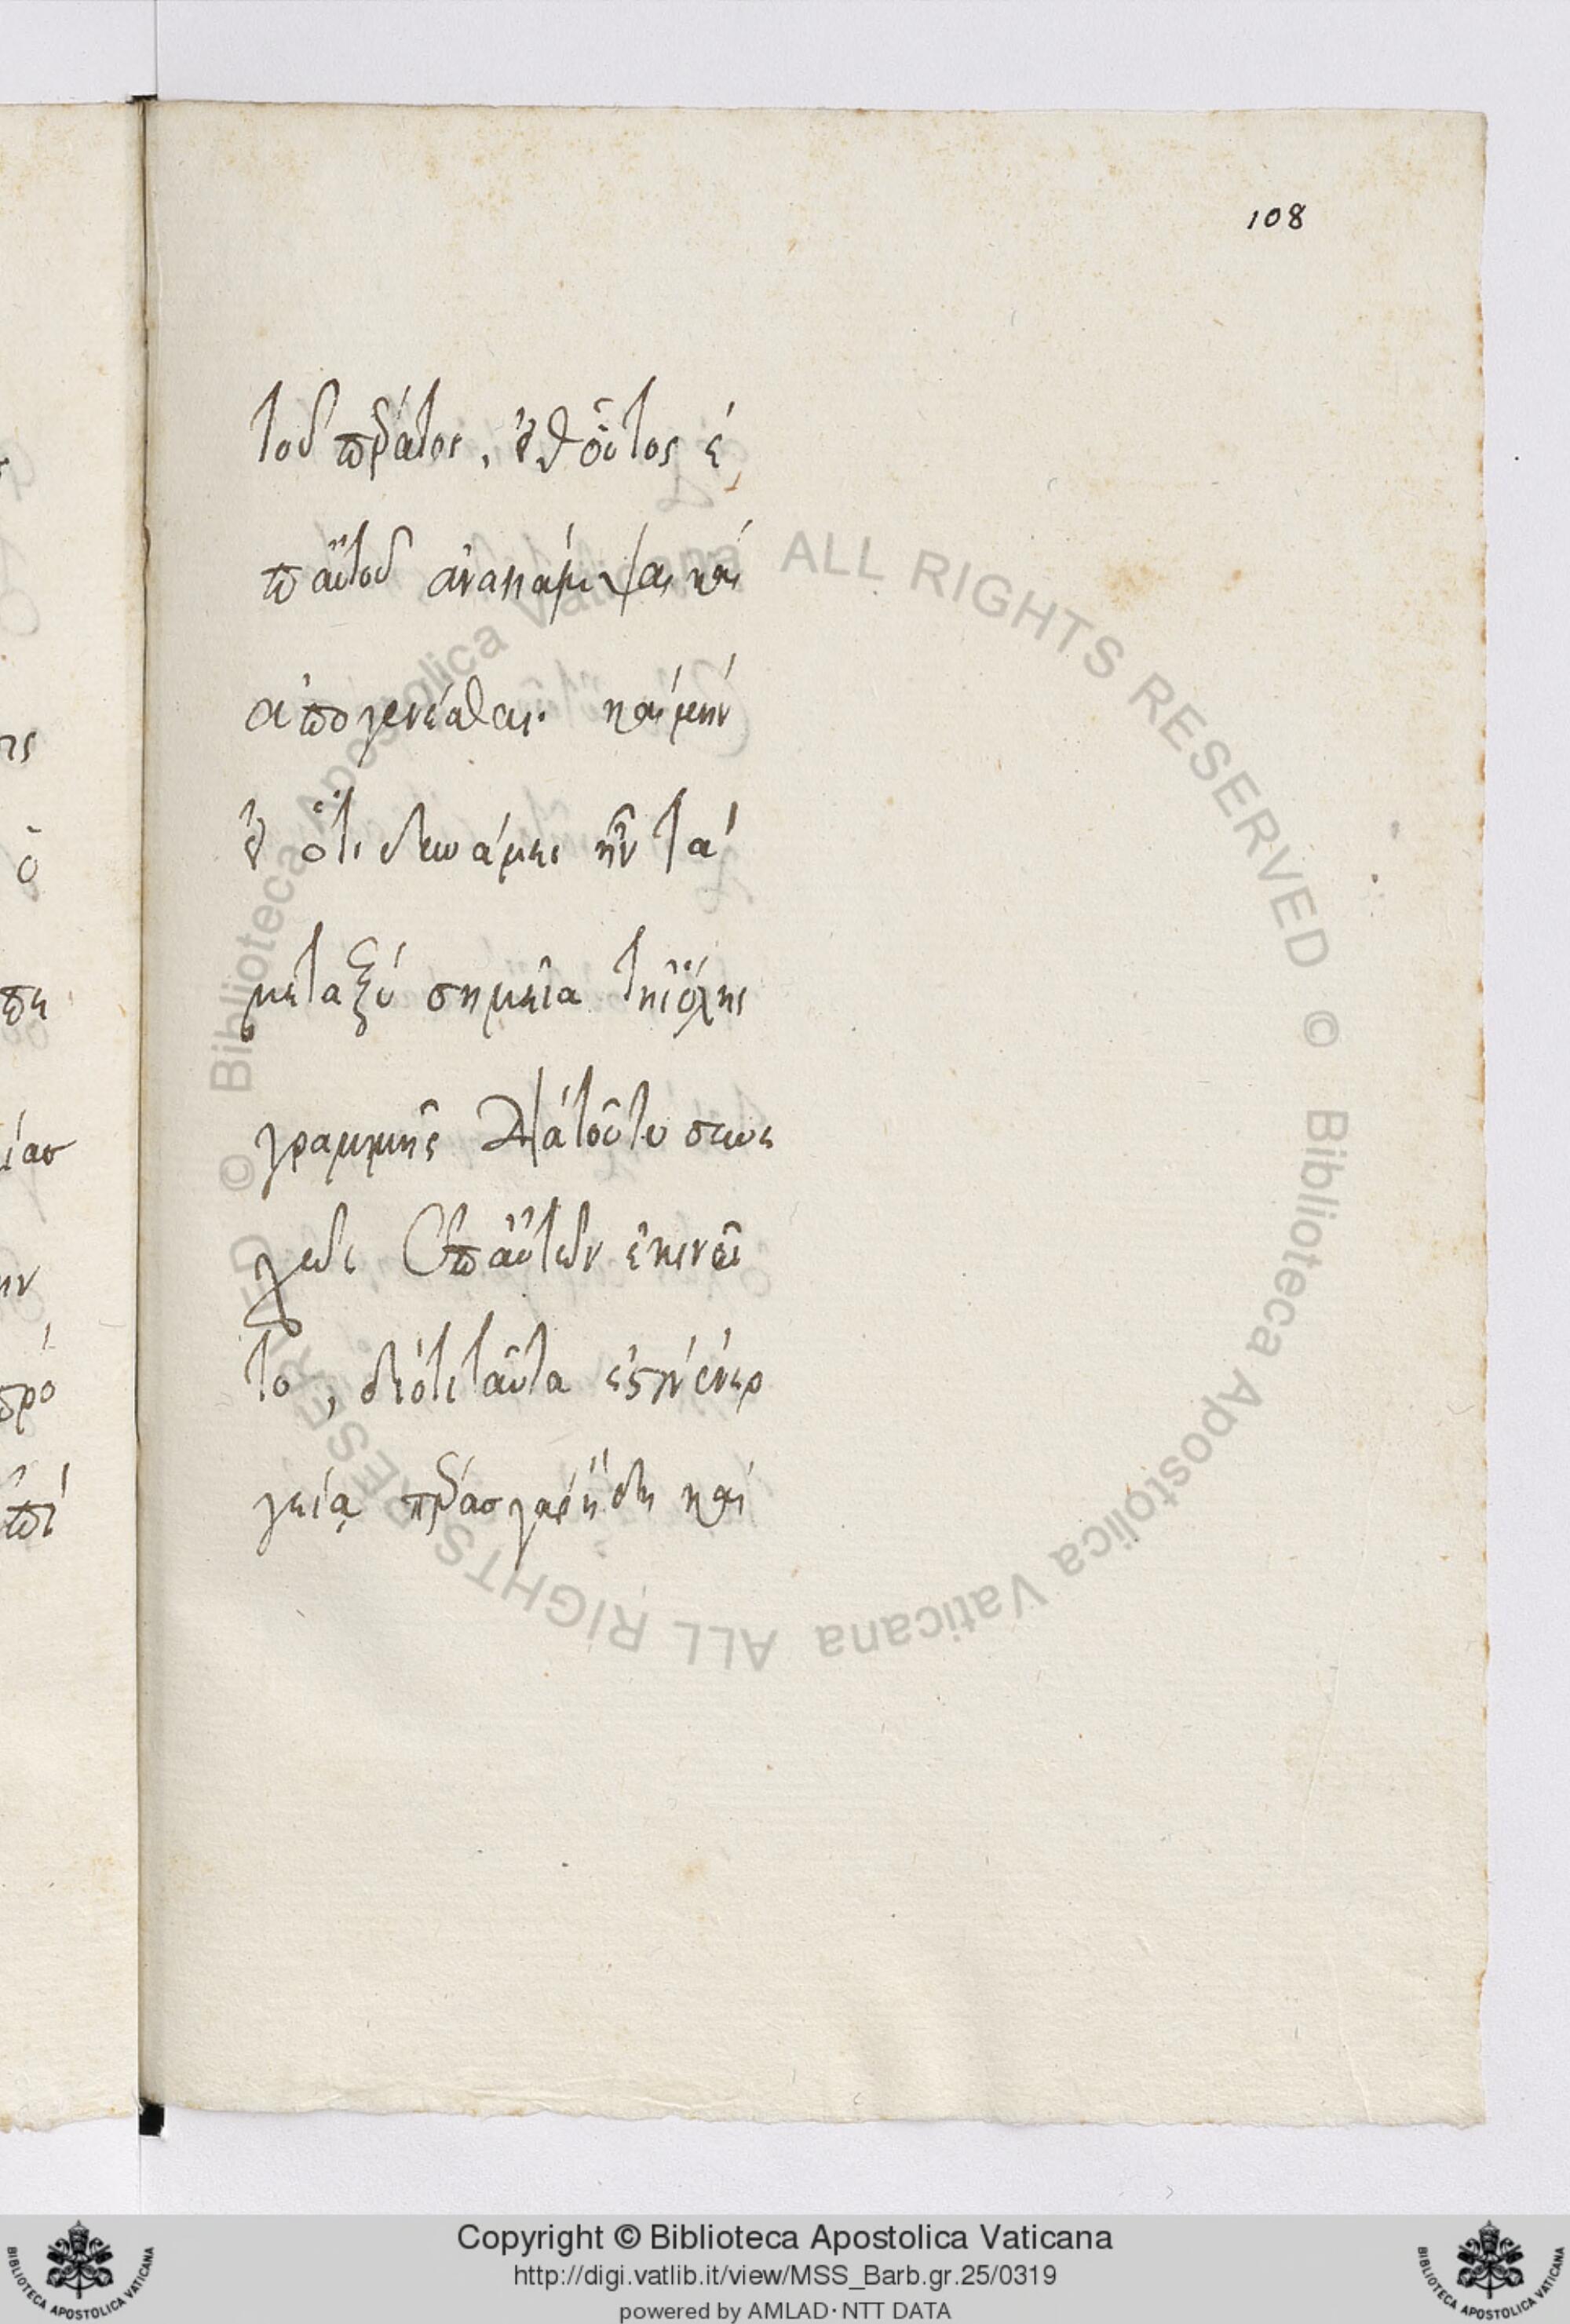 108
τοῦ πέρατος, οὐθ' οὗτος ἐ
π' αὐτοῦ ἀνακάμψαι καὶ
ἀπογενέσθαι. καὶ μὴν
οὐδ' ὅτι δυνάμει ἦν τὰ
μεταξὺ σημεῖα τῆς ὅλης
γραμμῆς διὰ τοῦτο συνε
χῶς ἐπ' αὐτῶν ἐκινεῖ
το, διότι ταῦτα ἐστὶν ἐνερ
γείᾳ πέρας γὰρ ἤδη καὶ
ALL RIGHTS RESERVED © Biblioteca Apostolica Vaticana
ALL RIGHTS RESERVED © Biblioteca Apostolica Vaticana
Copyright © Biblioteca Apostolica Vaticana
http://digi.vatlib.it/view/MSS_Barb.gr.25/0319
powered by AMLAD·NTT DATA
BIBLIOTECA APOSTOLICA VATICANA
BIBLIOTECA APOSTOLICA VATICANA